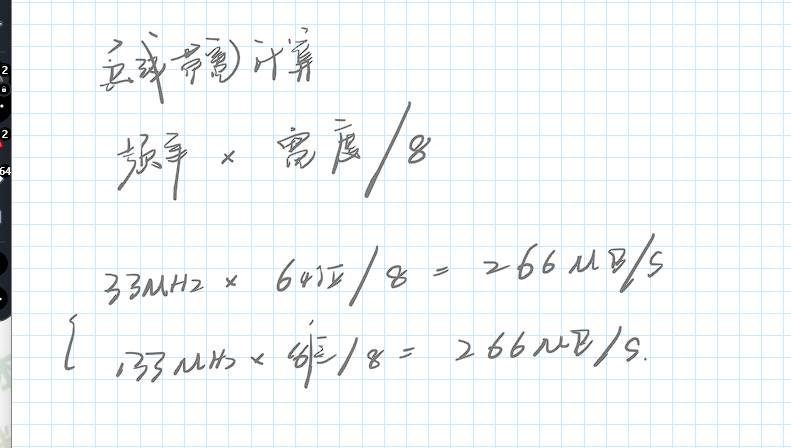 总线带宽计算
频率 × 宽度/8
33MHz × 64位/8 = 266MB/s
133MHz × 16位/8 = 266MB/s.
2
2
64